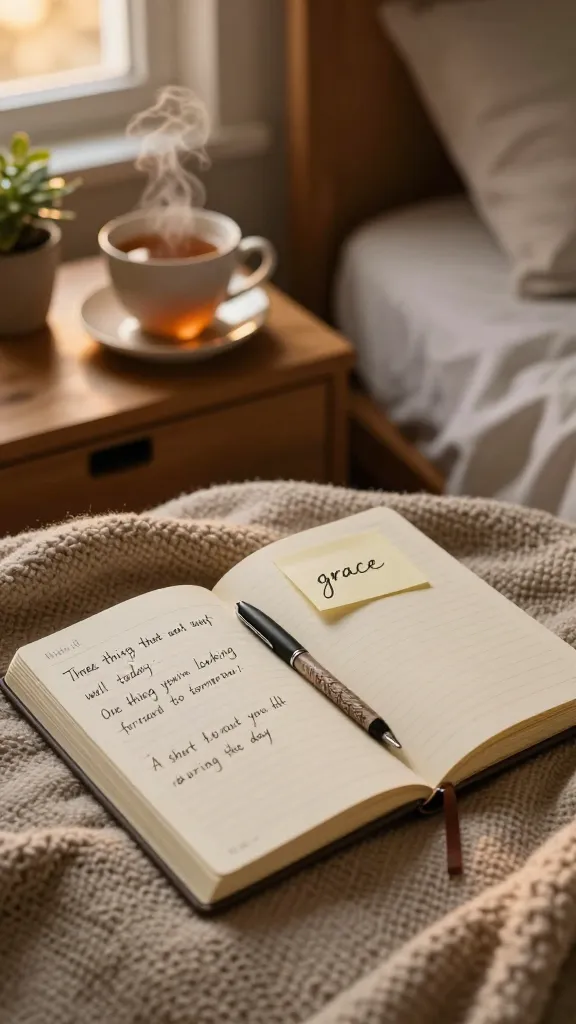 Three thing that went
well today.
One thing you're looking
forward to tomorrow.
A short you felt
the day
grace